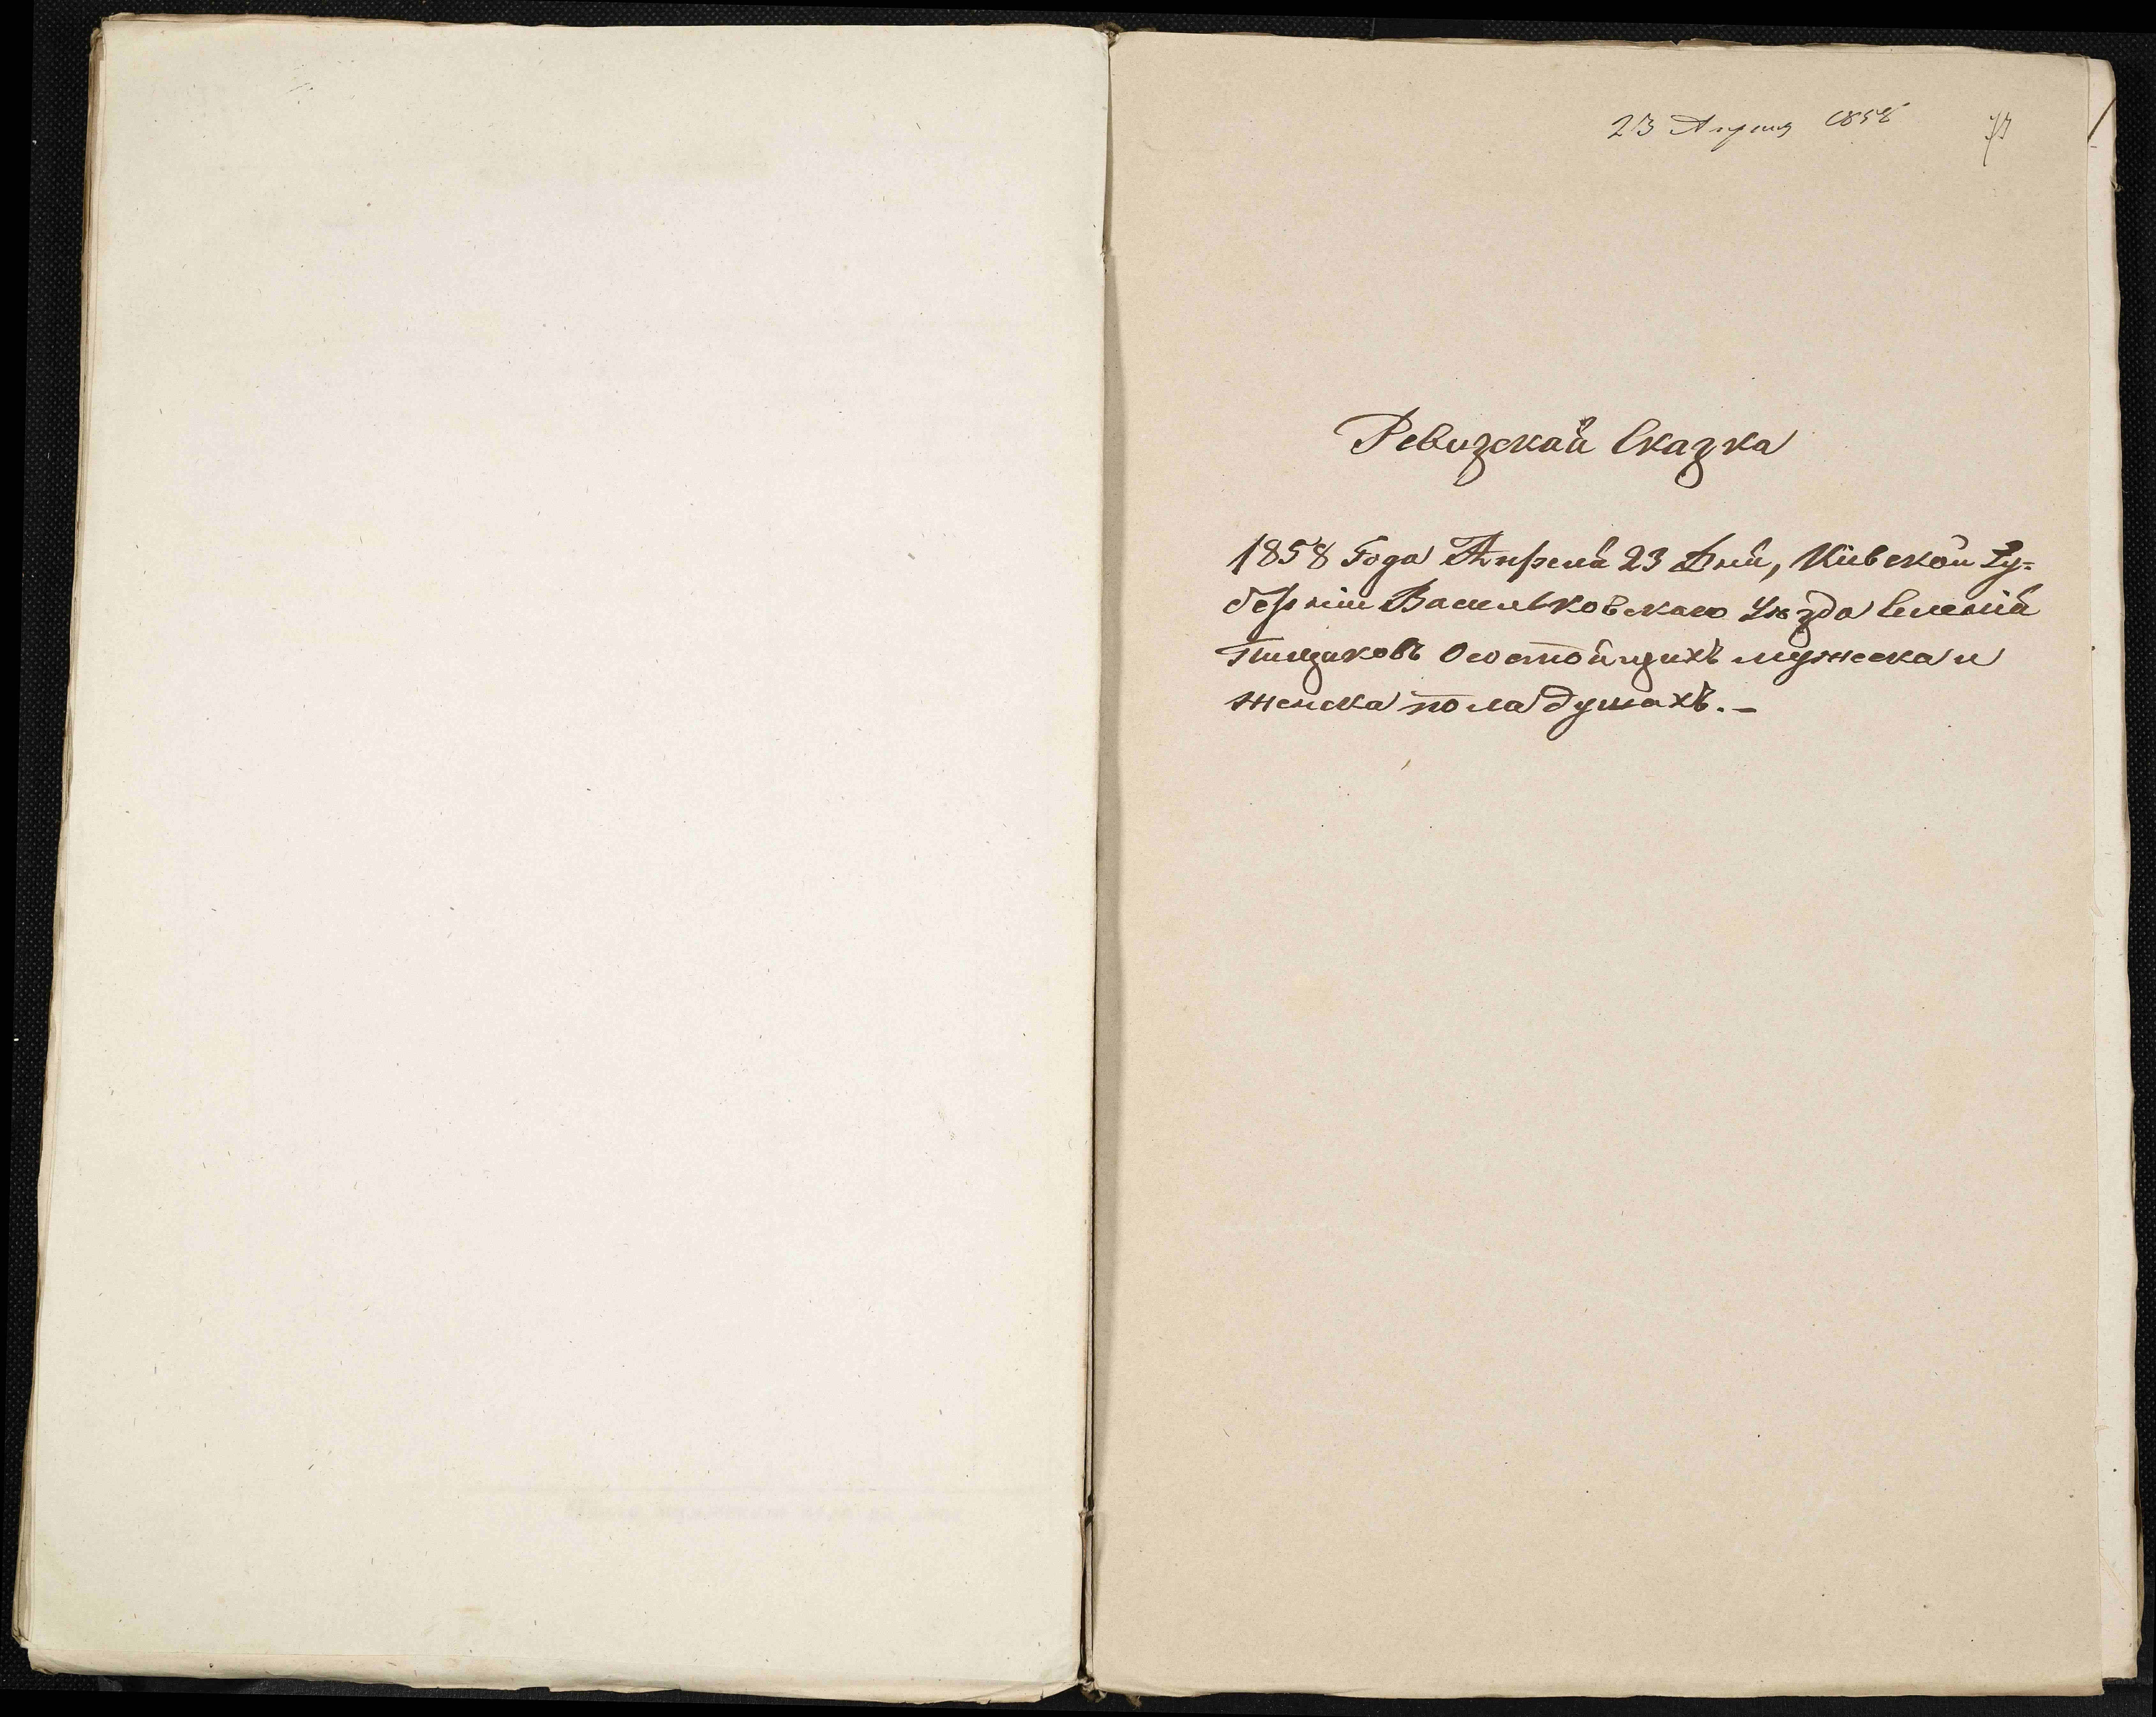 23 Апреля 1858
77
Ревизская Сказка
1858 Года Апреля 23 Дня, Киевской Гу=
берніи Васильковскаго Уѣзда Селенія
Пищиковъ О состоящихъ мужеска и
женска пола душахъ.-